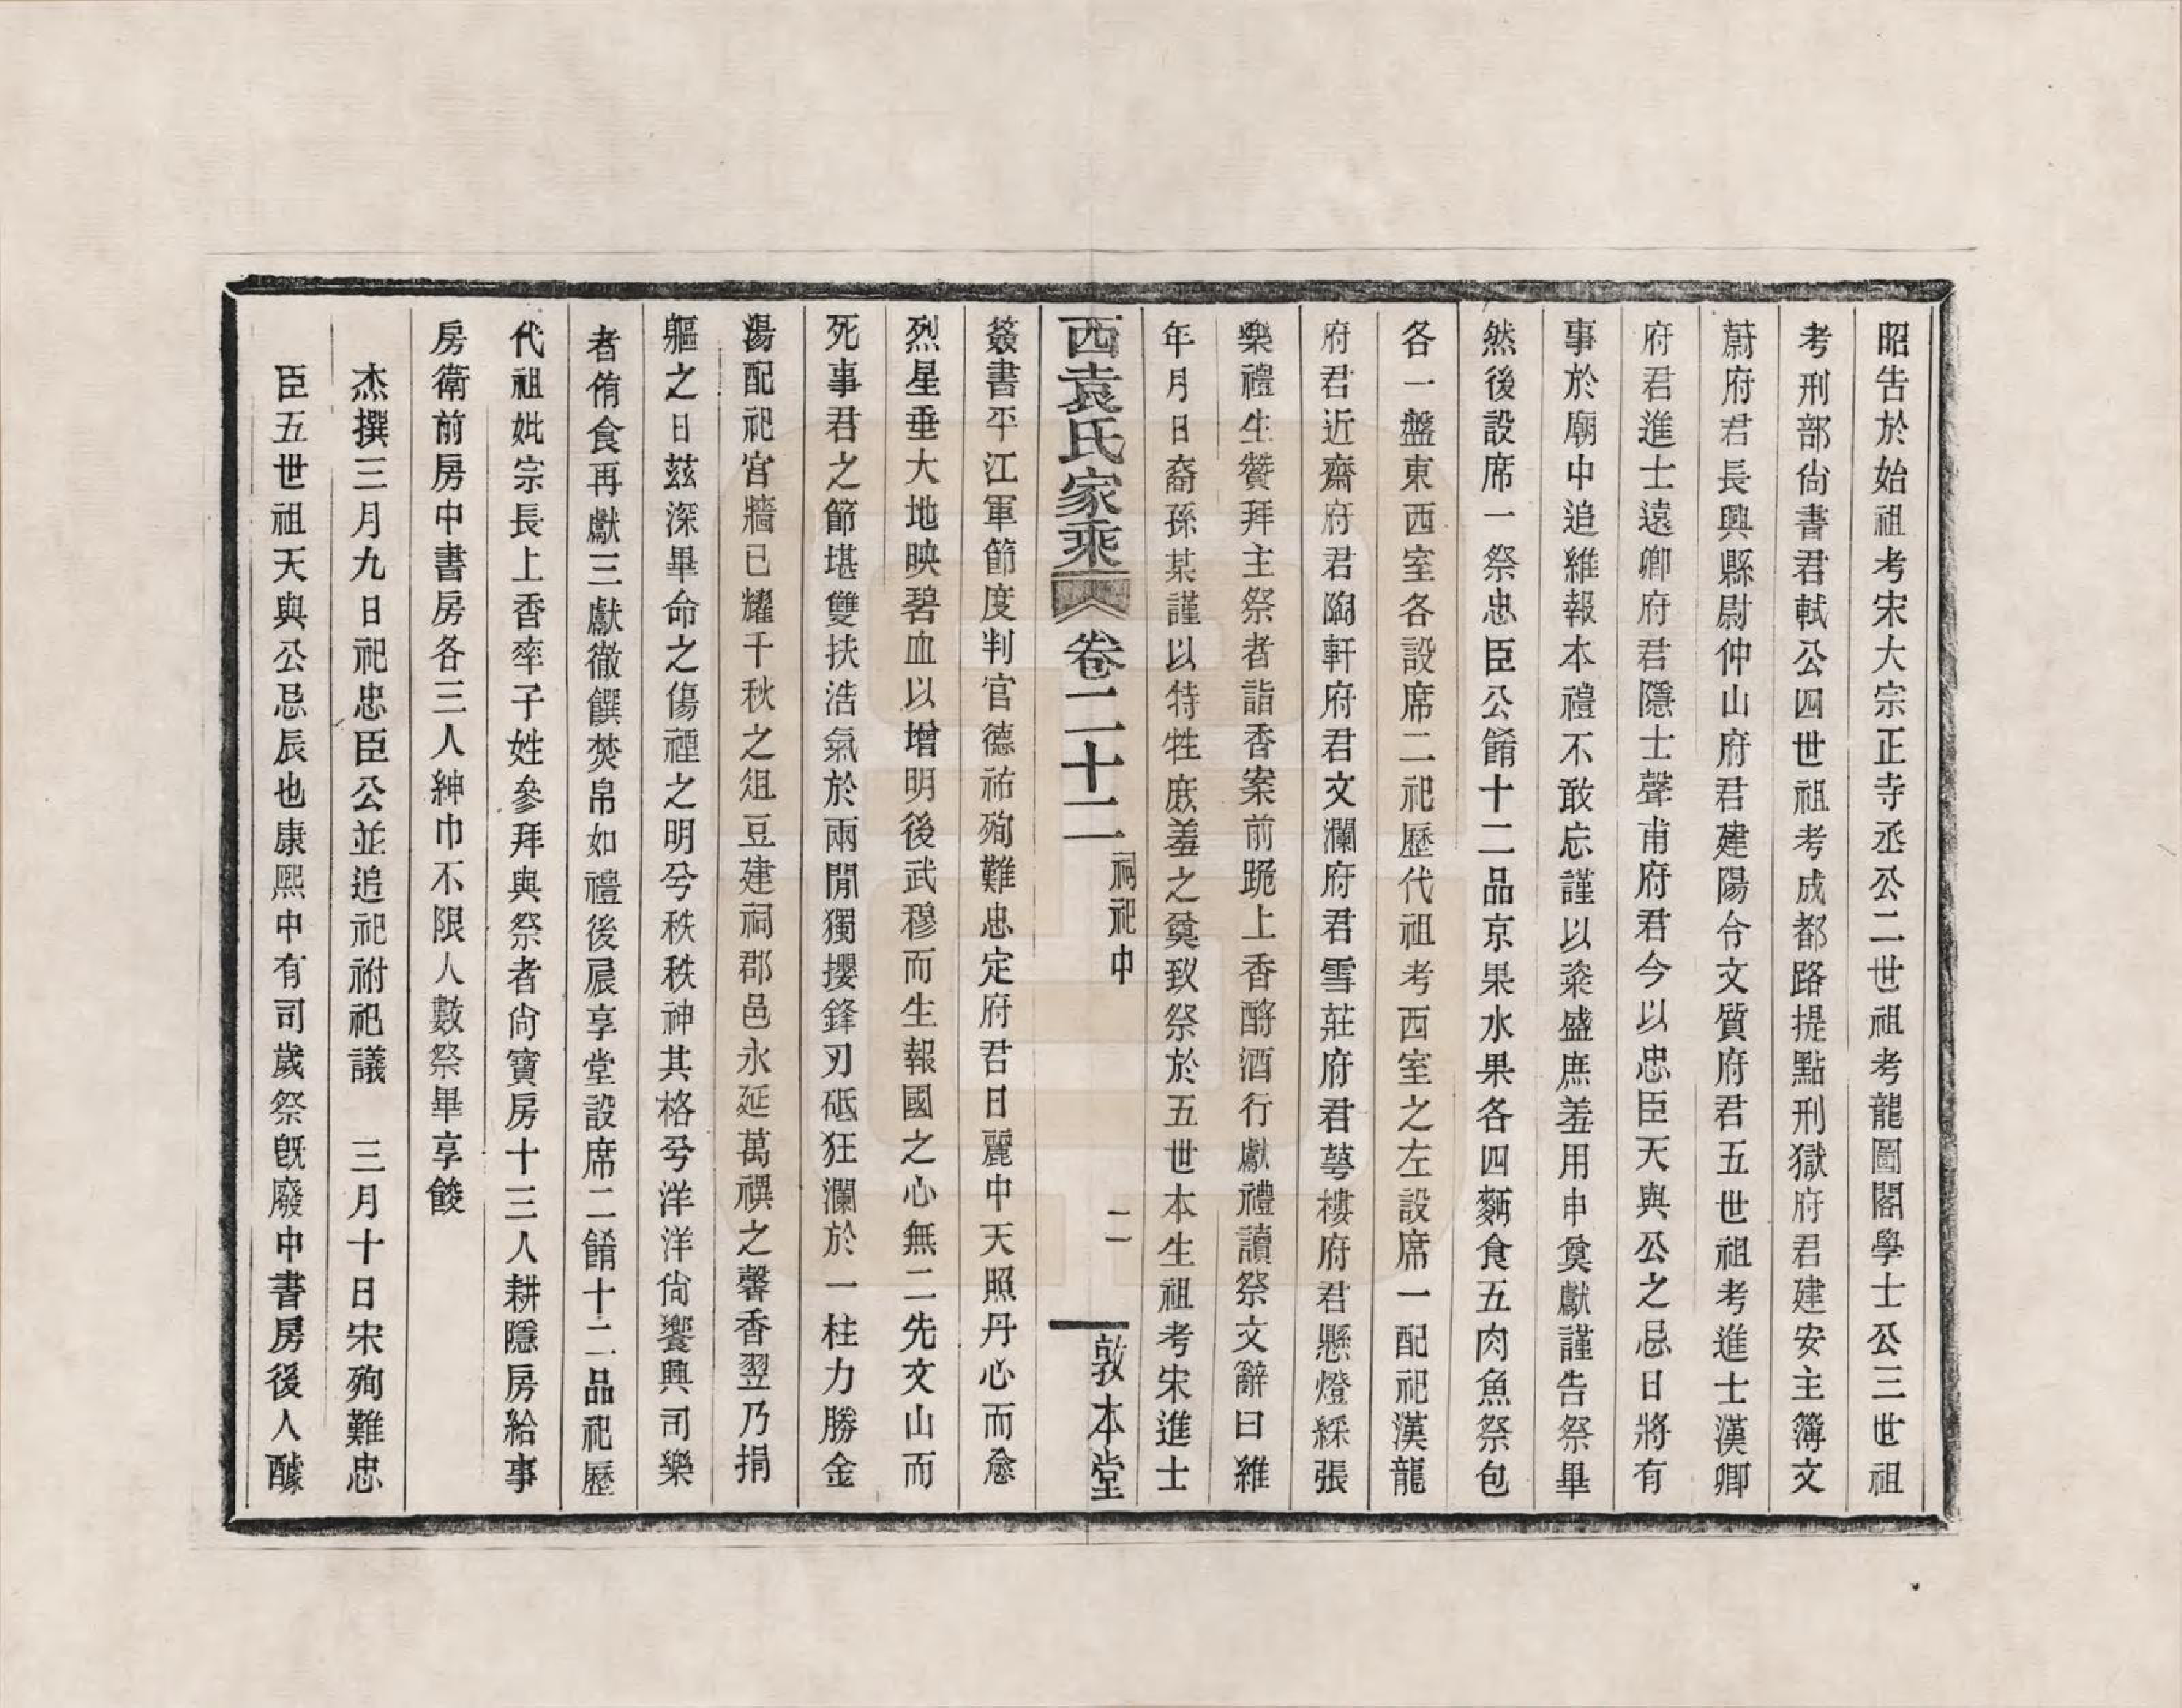 昭告於始祖考宋大宗正寺丞公二世祖考龍圖閣學士公三世祖
考刑部尙書君軾公四世祖考成都路提點刑獄府君建安主簿文
蔚府君長興縣尉仲山府君建陽令文質府君五世祖考進士漢卿
府君進士遠卿府君隱士聲甫府君今以忠臣天與公之忌日將有
事於廟中追維報本禮不敢忘謹以粢盛庶羞用申奠獻謹告祭畢
然後設席一祭忠臣公餚十二品京果水果各四麪食五肉魚祭包
各一盤東西室各設席二祀歷代祖考西室之左設席一配祀漢龍
府君近齋府君陶軒府君文瀾府君雪莊府君萼樓府君懸燈綵張
樂禮生贊拜主祭者詣香案前跪上香酹酒行獻禮讀祭文辭曰維
年月日裔孫某謹以特牲庶羞之奠致祭於五世本生祖考宋進士
西袁氏家乘
卷二十二
祠祀中
二
敦本堂
簽書平江軍節度判官德祐殉難忠定府君日麗中天照丹心而愈
烈星垂大地映碧血以增明後武穆而生報國之心無二先文山而
死事君之節堪雙扶浩氣於兩閒獨攖鋒刃砥狂瀾於一柱力勝金
湯配祀宮牆已耀千秋之俎豆建祠郡邑永延萬禩之馨香翌乃捐
軀之日茲深畢命之傷禋之明兮秩秩神其格兮洋洋尙饗興司樂
者侑食再獻三獻徹饌焚帛如禮後晨享堂設席二餚十二品祀歷
代祖妣宗長上香率子姓參拜與祭者尙寶房十三人耕隱房給事
房衛前房中書房各三人紳巾不限人數祭畢享餕
杰撰三月九日祀忠臣公並追祀祔祀議　三月十日宋殉難忠
臣五世祖天與公忌辰也康熙中有司歲祭旣廢中書房後人醵